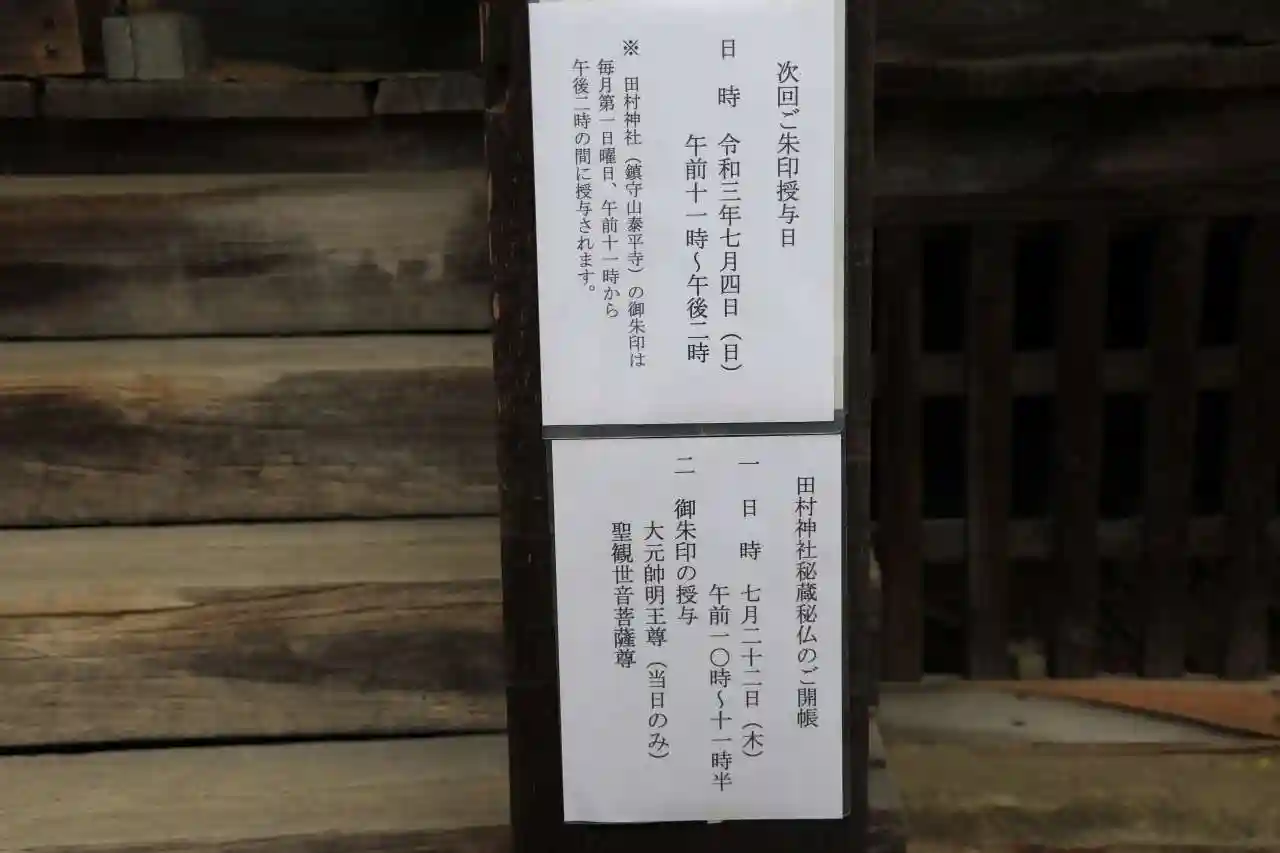 次回ご朱印授与日
日 時 令和三年七月四日（日）
午前十一時～午後二時
※ 田村神社（鎮守山泰平寺）の御朱印は
毎月第一日曜日、午前十一時から
午後二時の間に授与されます。
田村神社秘蔵秘仏のご開帳
一 日 時 七月二十二日（木）
午前一〇時～十一時半
二 御朱印の授与
大元帥明王尊（当日のみ）
聖観世音菩薩尊